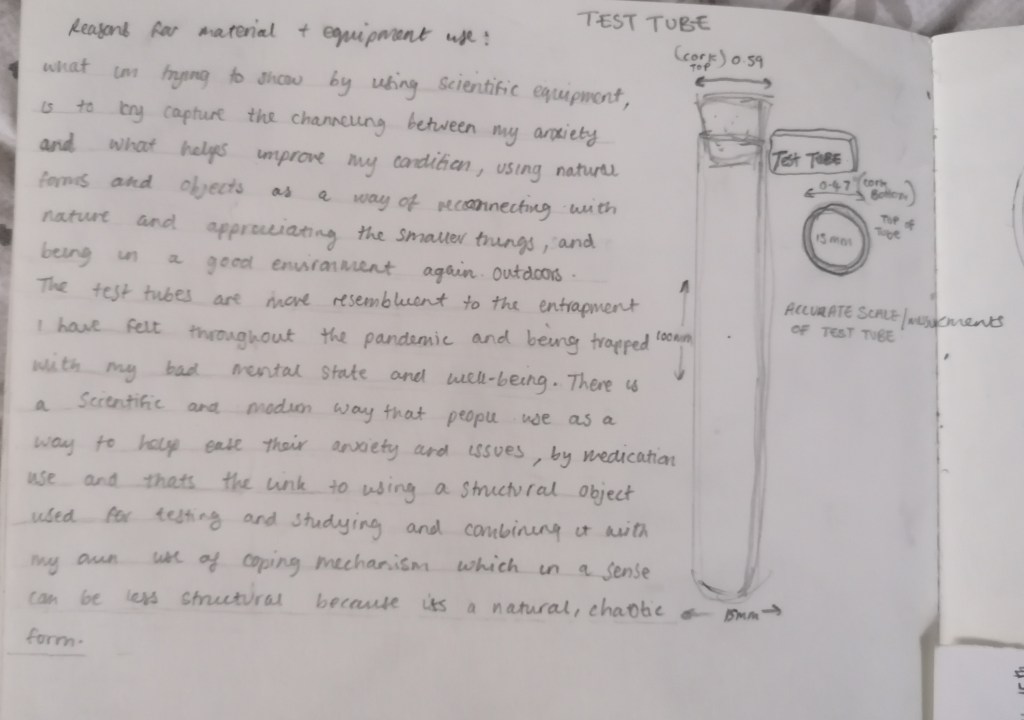 Reasons for material + equipment use:
what im trying to show by using scientific equipment,
is to try capture the channeling between my anxiety
and what helps improve my condition, using natural
forms and objects as a way of reconnecting with
nature and appreciating the smaller things, and
being in a good environment again outdoors.
The test tubes are more resembluent to the entrapment
I have felt throughout the pandemic and being trapped
with my bad mental state and well-being. There is
a scientific and modern way that people use as a
way to help ease their anxiety and issues, by medication
use and thats the link to using a structural object
used for testing and studying and combining it with
my own use of coping mechanism which in a sense
can be less structural because its a natural, chaotic
form.
TEST TUBE
(cork) 0.59
TOP
TEST TUBE
0.47 (cork
Bottom)
TOP OF
TUBE
15mm
ACCURATE SCALE/measurements
OF TEST TUBE
100mm
15mm